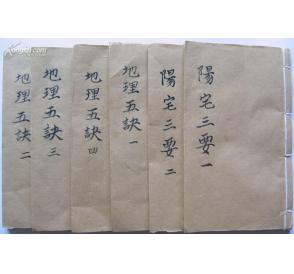 陽宅三要一
陽宅三要二
地理五訣一
地理五訣四
地理五訣三
地理五訣二